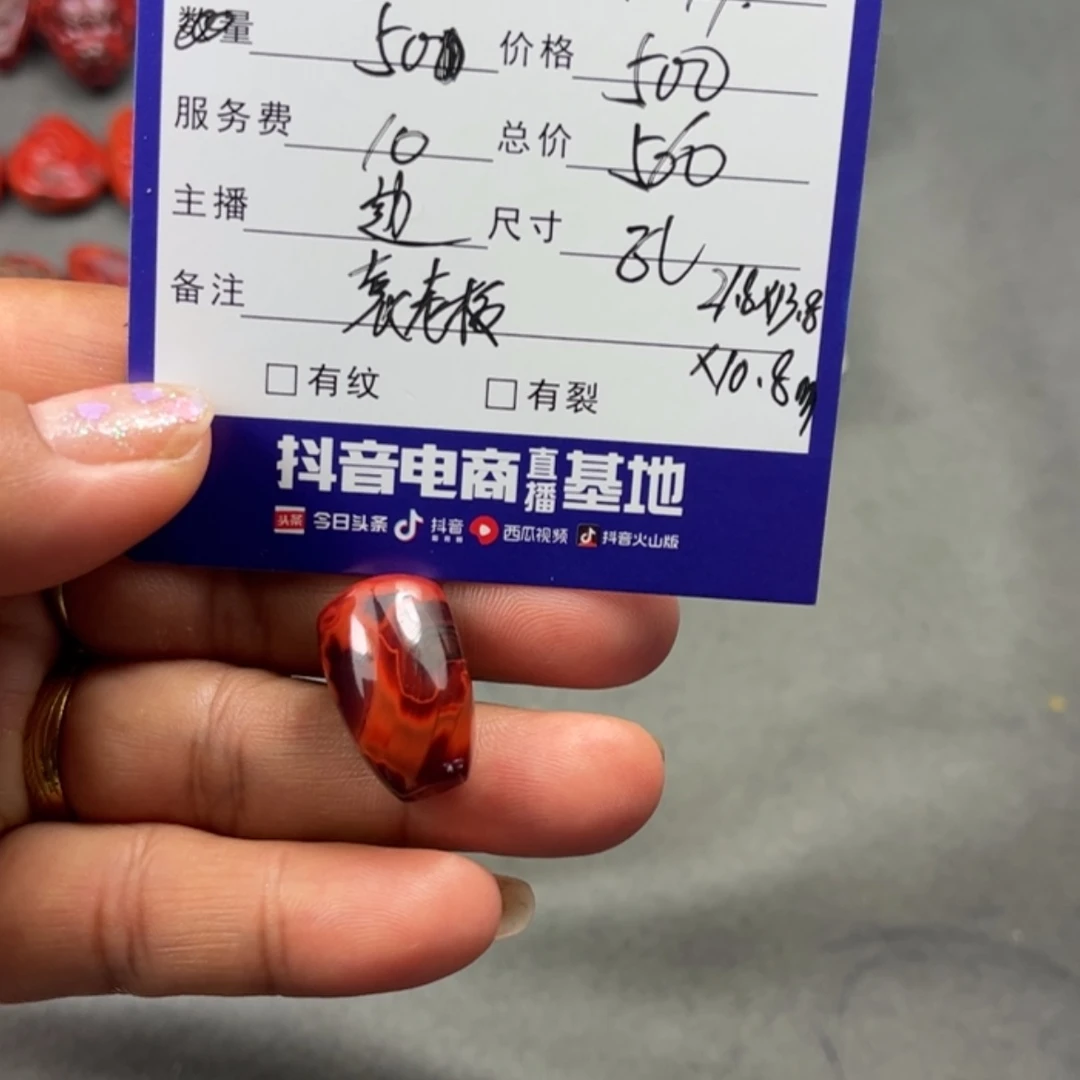 数量 500 价格 500
服务费 10 总价 560
主播 尺寸 孔
21.8×13.8
备注 袁老板
×10.8
□有纹 □有裂
抖音电商直播基地
头条 今日头条 抖音 西瓜视频 抖音火山版